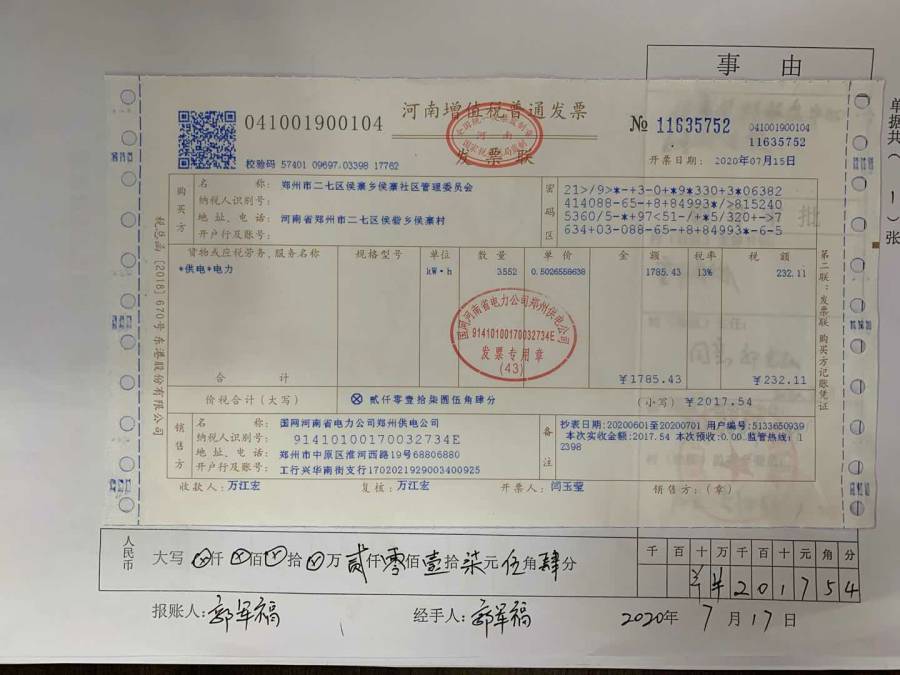 事 由
单据共（ 1 ）张
批
河南增值税普通发票
发票联
041001900104
№ 11635752
041001900104
11635752
校验码 57401 09697 03398 17762
开票日期： 2020年07月15日
购买方
名 称： 郑州市二七区侯寨乡侯寨社区管理委员会
纳税人识别号：
地 址、电 话： 河南省郑州市二七区侯寨乡侯寨村
开户行及账号：
密码区
21>/9>*-+3-0+*9*330+3*06382
414088-65-+8+84993*/>815240
5360/5-*+97<51-/+*5/320+->7
634+03-088-65-+8+84993*-6-5
货物或应税劳务、服务名称 规格型号 单位 数 量 单 价 金 额 税率 税 额
*供电*电力 kW·h 3552 0.5026558638 1785.43 13% 232.11
国网河南省电力公司郑州供电公司
91410100170032734E
发票专用章
(43)
合 计 ￥1785.43 ￥232.11
价税合计（大写） ⊗ 贰仟零壹拾柒圆伍角肆分 （小写）￥2017.54
销售方
名 称： 国网河南省电力公司郑州供电公司
纳税人识别号： 91410100170032734E
地 址、电 话： 郑州市中原区淮河西路19号68806880
开户行及账号： 工行兴华南街支行1702021929003400925
备注
抄表日期:20200601至20200701 用户编号:5133650939
本次实收金额:2017.54 本次预收:0.00.监管热线:1
2398
收款人：万江宏 复核：万江宏 开票人：闫玉莹 销售方：（章）
税总函［2018］670号东港股份有限公司
第二联：发票联 购买方记账凭证
人民币
大写 ⊗仟⊗佰⊗拾⊗万贰仟零佰壹拾柒元伍角肆分
千 百 十 万 千 百 十 元 角 分
2 0 1 7 5 4
报账人：郭军福 经手人：郭军福 2020年 7 月 17 日